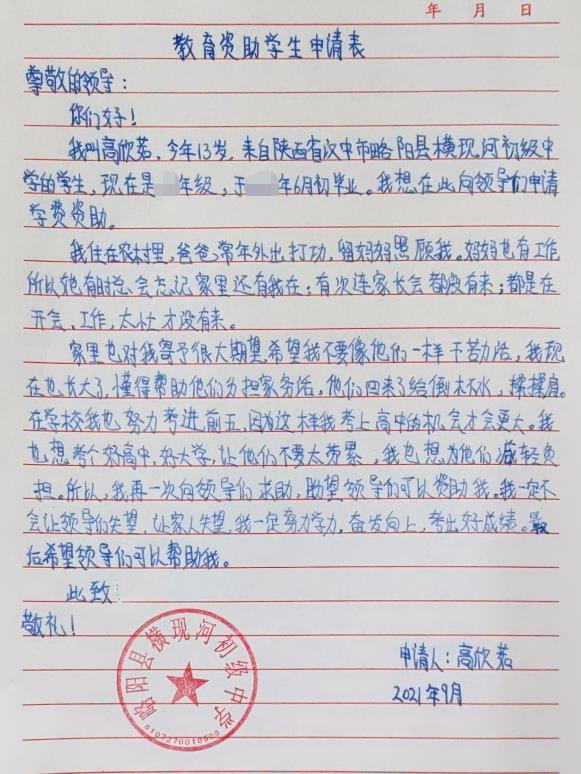 年 月 日
教育资助学生申请表
尊敬的领导:
你们好!
我叫高欣茹,今年13岁,来自陕西省汉中市略阳县横现河初级中
学的学生,现在是 年级,于 年6月初毕业。我想在此向领导们申请
学费资助。
我住在农村里,爸爸常年外出打功,留妈妈照顾我。妈妈也有工作
所以她有时总会忘记家里还有我在;有次连家长会都没有来;都是在
开会、工作,太忙才没有来。
家里也对我寄予很大期望希望我不要像他们一样干苦力活,我现
在也长大了,懂得帮助他们分担家务活,他们回来了给倒杯水,揉揉肩。
在学校我也努力考进前五,因为这样我考上高中的机会才会更大。我
也想考个好高中,好大学,让他们不要太劳累,我也想为他们减轻负
担。所以,我再一次向领导们求助,盼望领导们可以资助我。我一定不
会让领导们失望,让家人失望,我一定努力学力,奋发向上,考出好成绩。最
后希望领导们可以帮助我。
此致
敬礼!
略阳县横现河初级中学
6107270010800
申请人:高欣茹
2021年9月